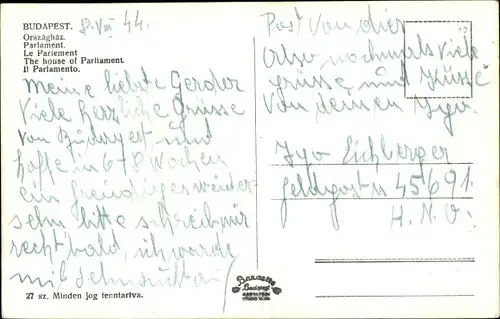 BUDAPEST. 8. VIII 44.
Országház.
Parlament.
Le Parlement
The house of Parliament.
Il Parlamento.
Meine liebste Gerda
Viele herzliche Grüsse
von Budapest und
hoffe in 6-8 Wochen
ein freudiges wieder-
sehn bitte schreib mir
recht bald, ich warde
mit Sehnsucht auf
27 sz. Minden jog fenntartva.
Post von dir
Also nochmals viele
grüsse und Küsse
von deinen Igo.
Igo Eichberger
Feldpost N 45691.
H.N.O.
Barasits
Budapest